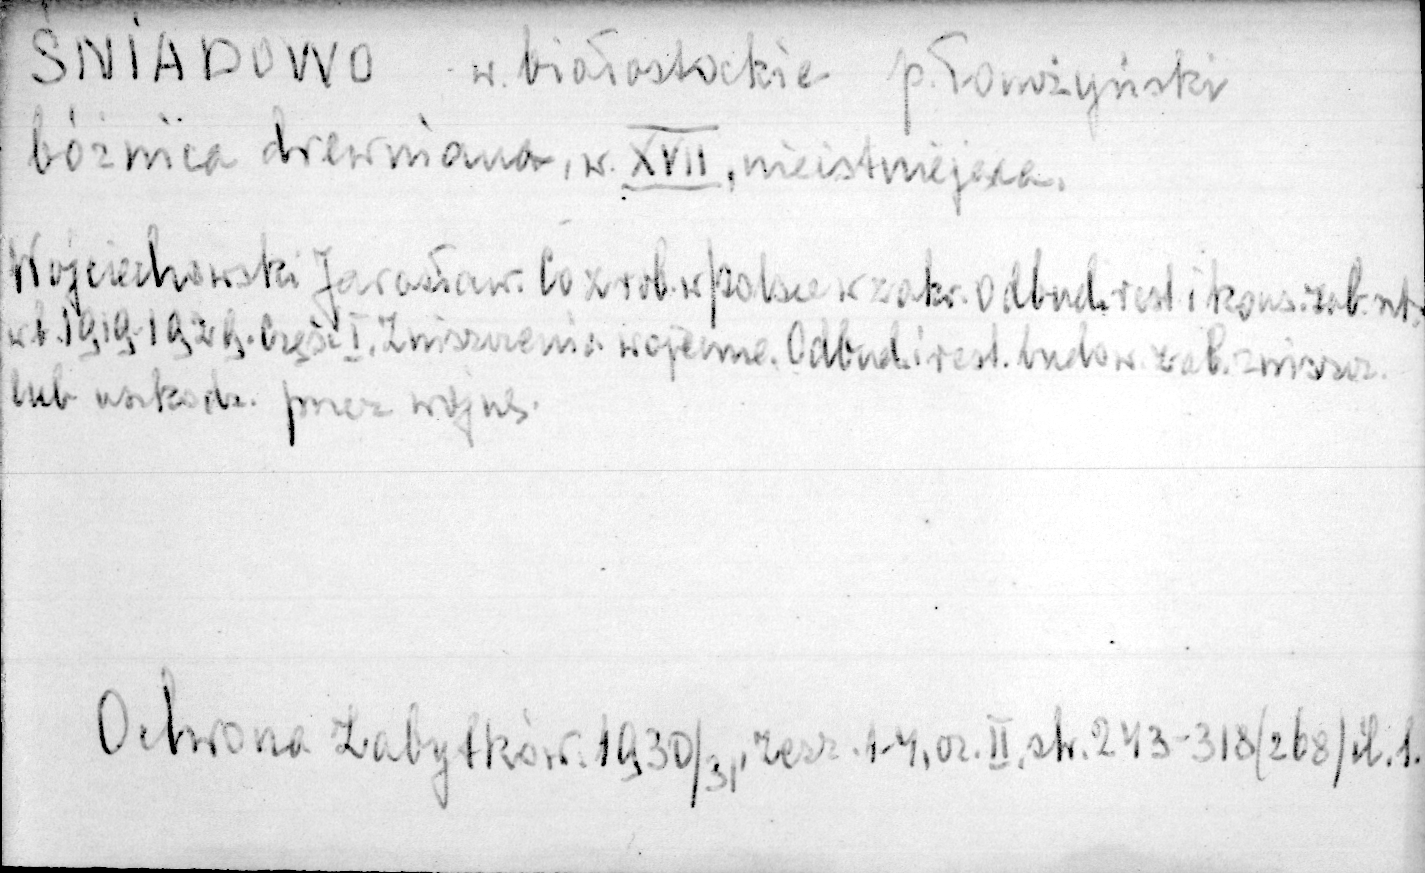 ŚNIADOWO w. białostockie p. łomżyński
bóżnica drewniana, w. XVII, nieistniejąca.
Wojciechowski Jarosław. Co zrob. w Polsce w zakr. odbud. rest. i kons. zab. szt.
w l. 1919-1929. Część I. Zniszczenia wojenne. Odbud. i rest. budow. zab. zniszcz.
lub uszkodz. przez wojnę.
Ochrona Zabytków. 1930/31, zesz. 1-4, cz. II, str. 243-318 (268) il. 1.